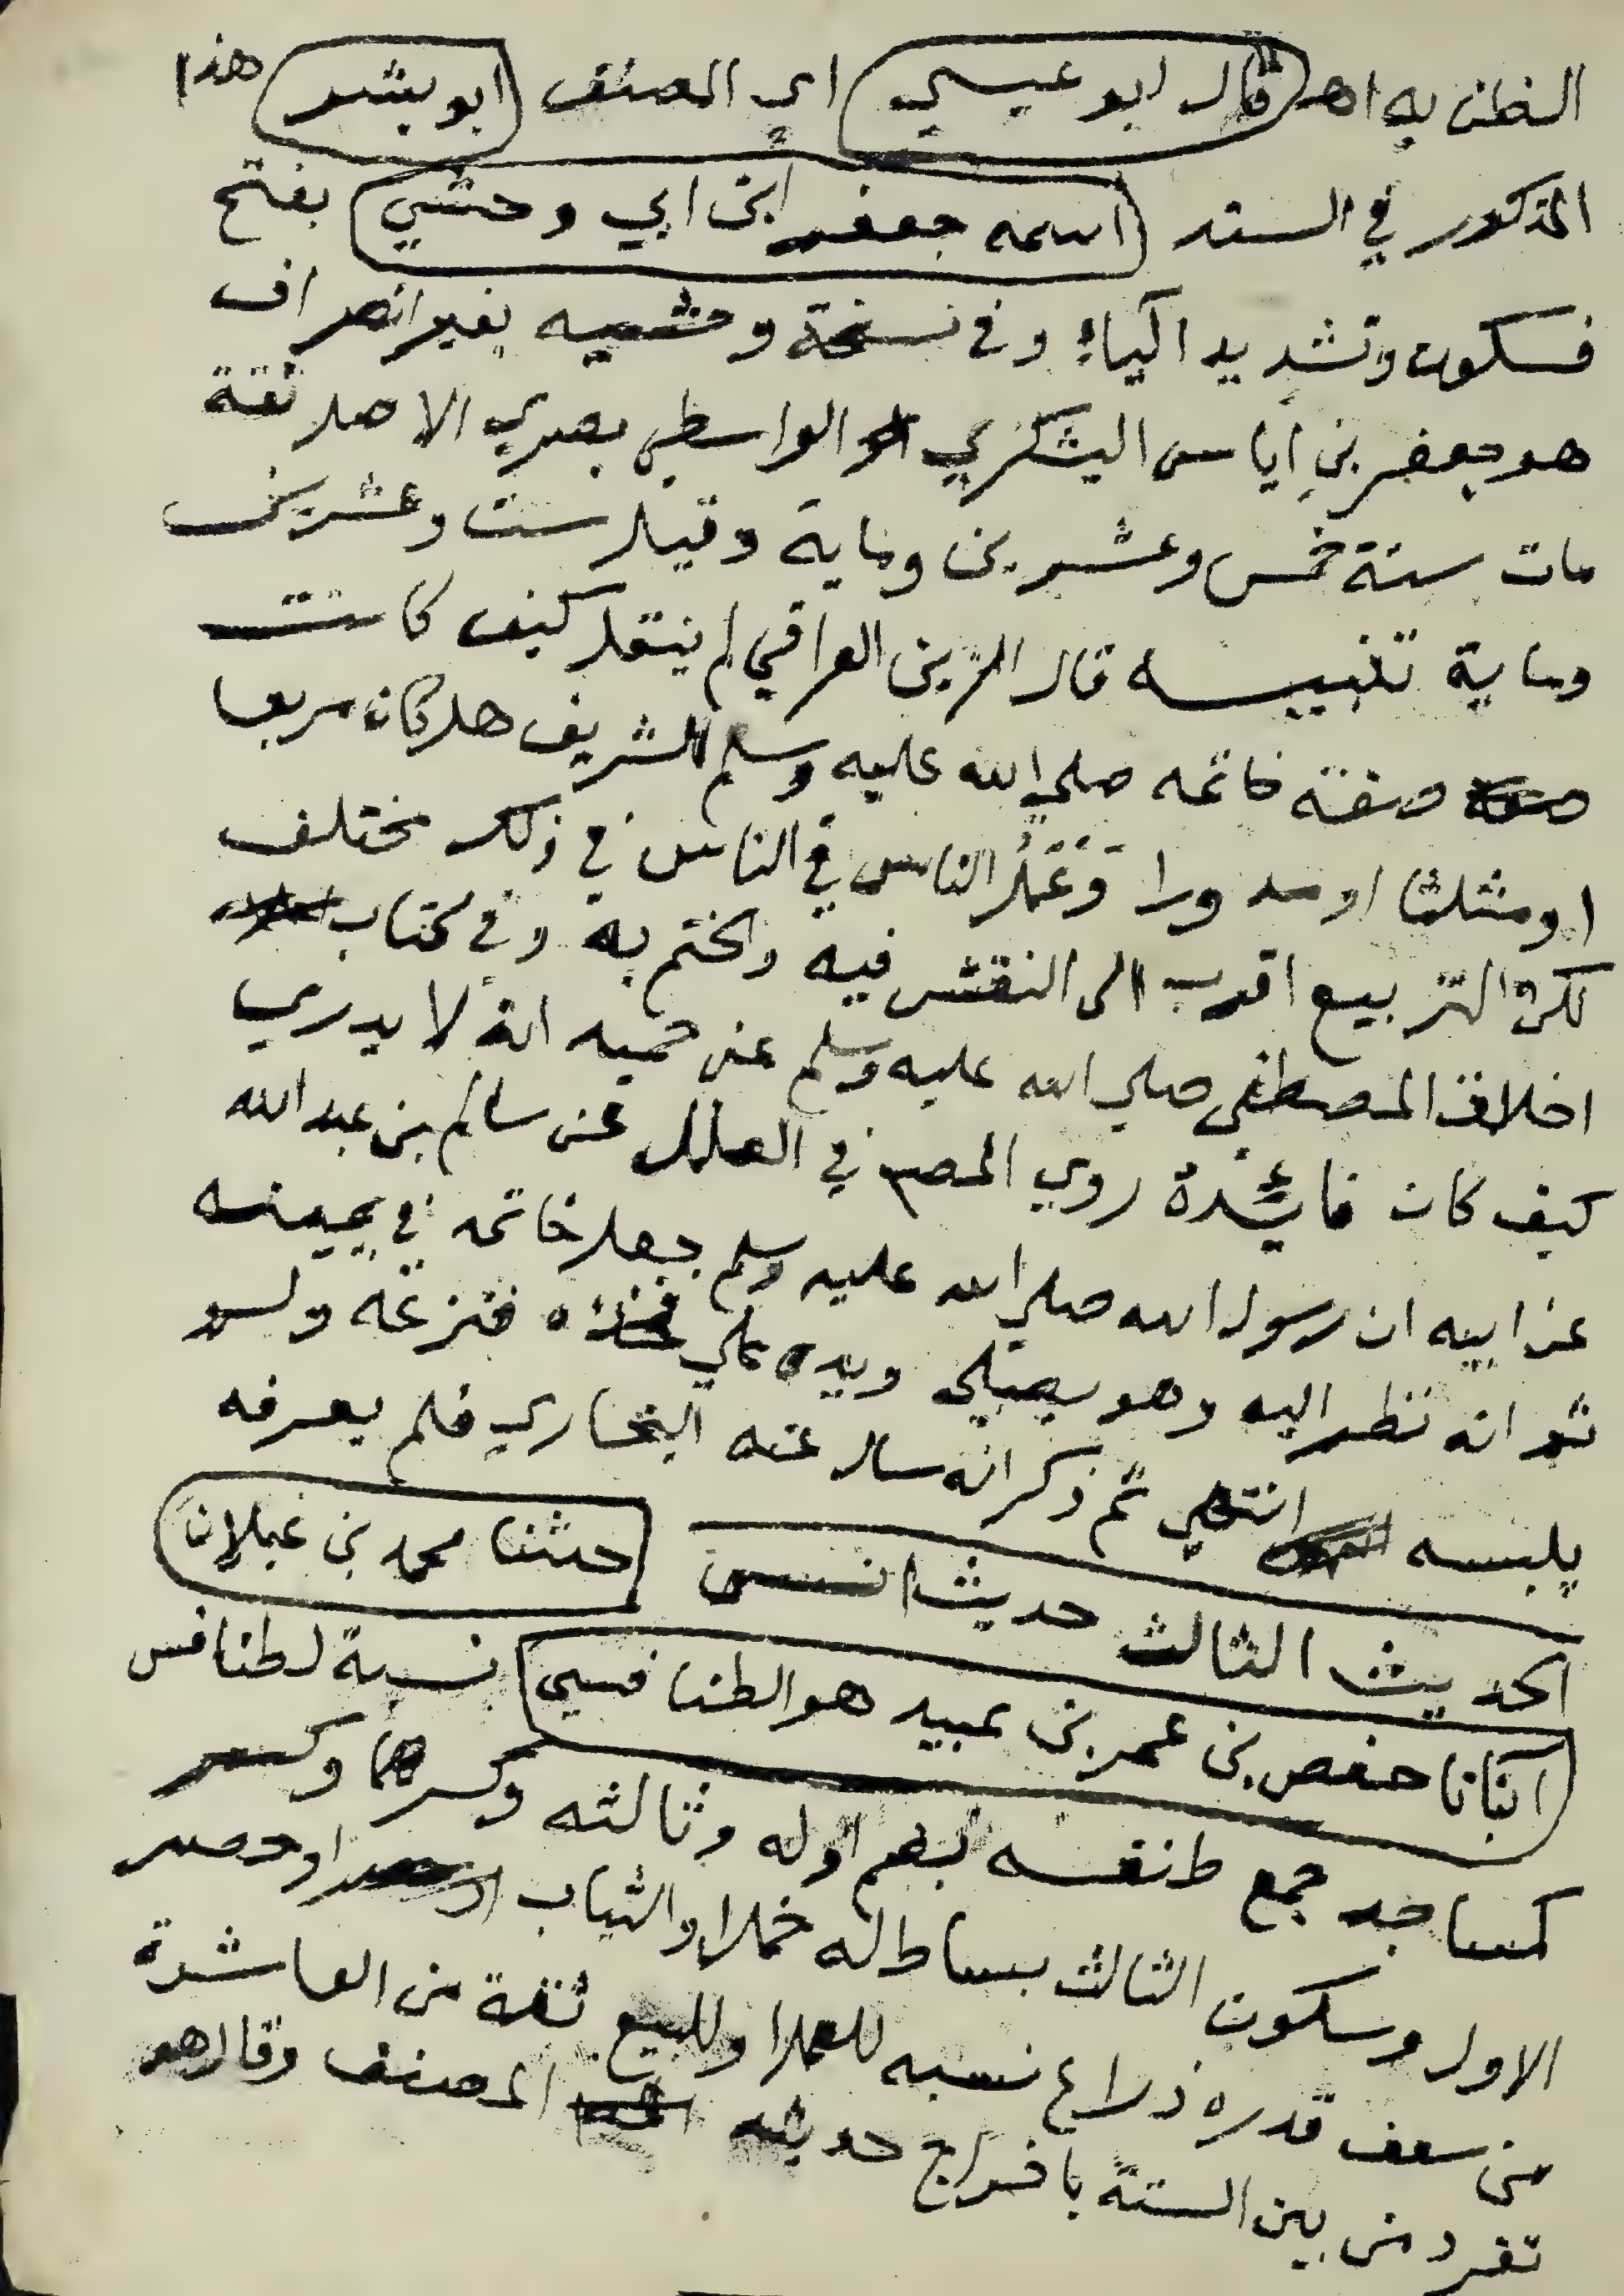 الظن به اهـ قال ابو عيسي اي المصنف ابو بشر هذا
المذكور في السند اسمه جعفر ابن ابي وحشي بفتح
فسكون وتشديد الياء وفي نسخة وحشيه بغير انصراف
هو جعفر بن اياس اليشكري الواسطي بصري الاصل ثقة
مات سنة خمس وعشرين وماية وقيل ست وعشرين
وماية تنبيه قال الزين العراقي لم ينقل كيف كانت
صفة خاتمه صلي الله عليه وسلم الشريف هل كان مربعا
او مثلثا او مدورا وَعَمَلُ الناس في الناس في ذلك مختلف
لكن التربيع اقرب الى النقش فيه والختم به وفي كتاب
اخلاق المصطفى صلي الله عليه وسلم عن حميد انه لا يدري
كيف كان فائدة روي المصـ في العلل عن سالم بن عبد الله
عن ابيه ان رسول الله صلي الله عليه وسلم جعل خاتمه في يمينه
ثم انه نظر اليه وهو يصلي ويده علي فخذه فنزعه ولم
يلبسه انتهي ثم ذكر انه سال عنه البخاري فلم يعرفه
الحديث الثالث حديث انس حدثنا محمد بن غيلان
انبانا حفص بن عمر بن عبيد هو الطنافسي نسبة لطنافس
كمساجد جمع طنفسه بضم اوله وثالثه وكسرهما وكسر
الاول وسكون الثالث بساط له خمل او الثياب او حصير
من سعف قدره ذراع نسبه للعمل او للبيع ثقة من العاشرة
تفرد من بين الستة باخراج حديثه المصنف وقال هو